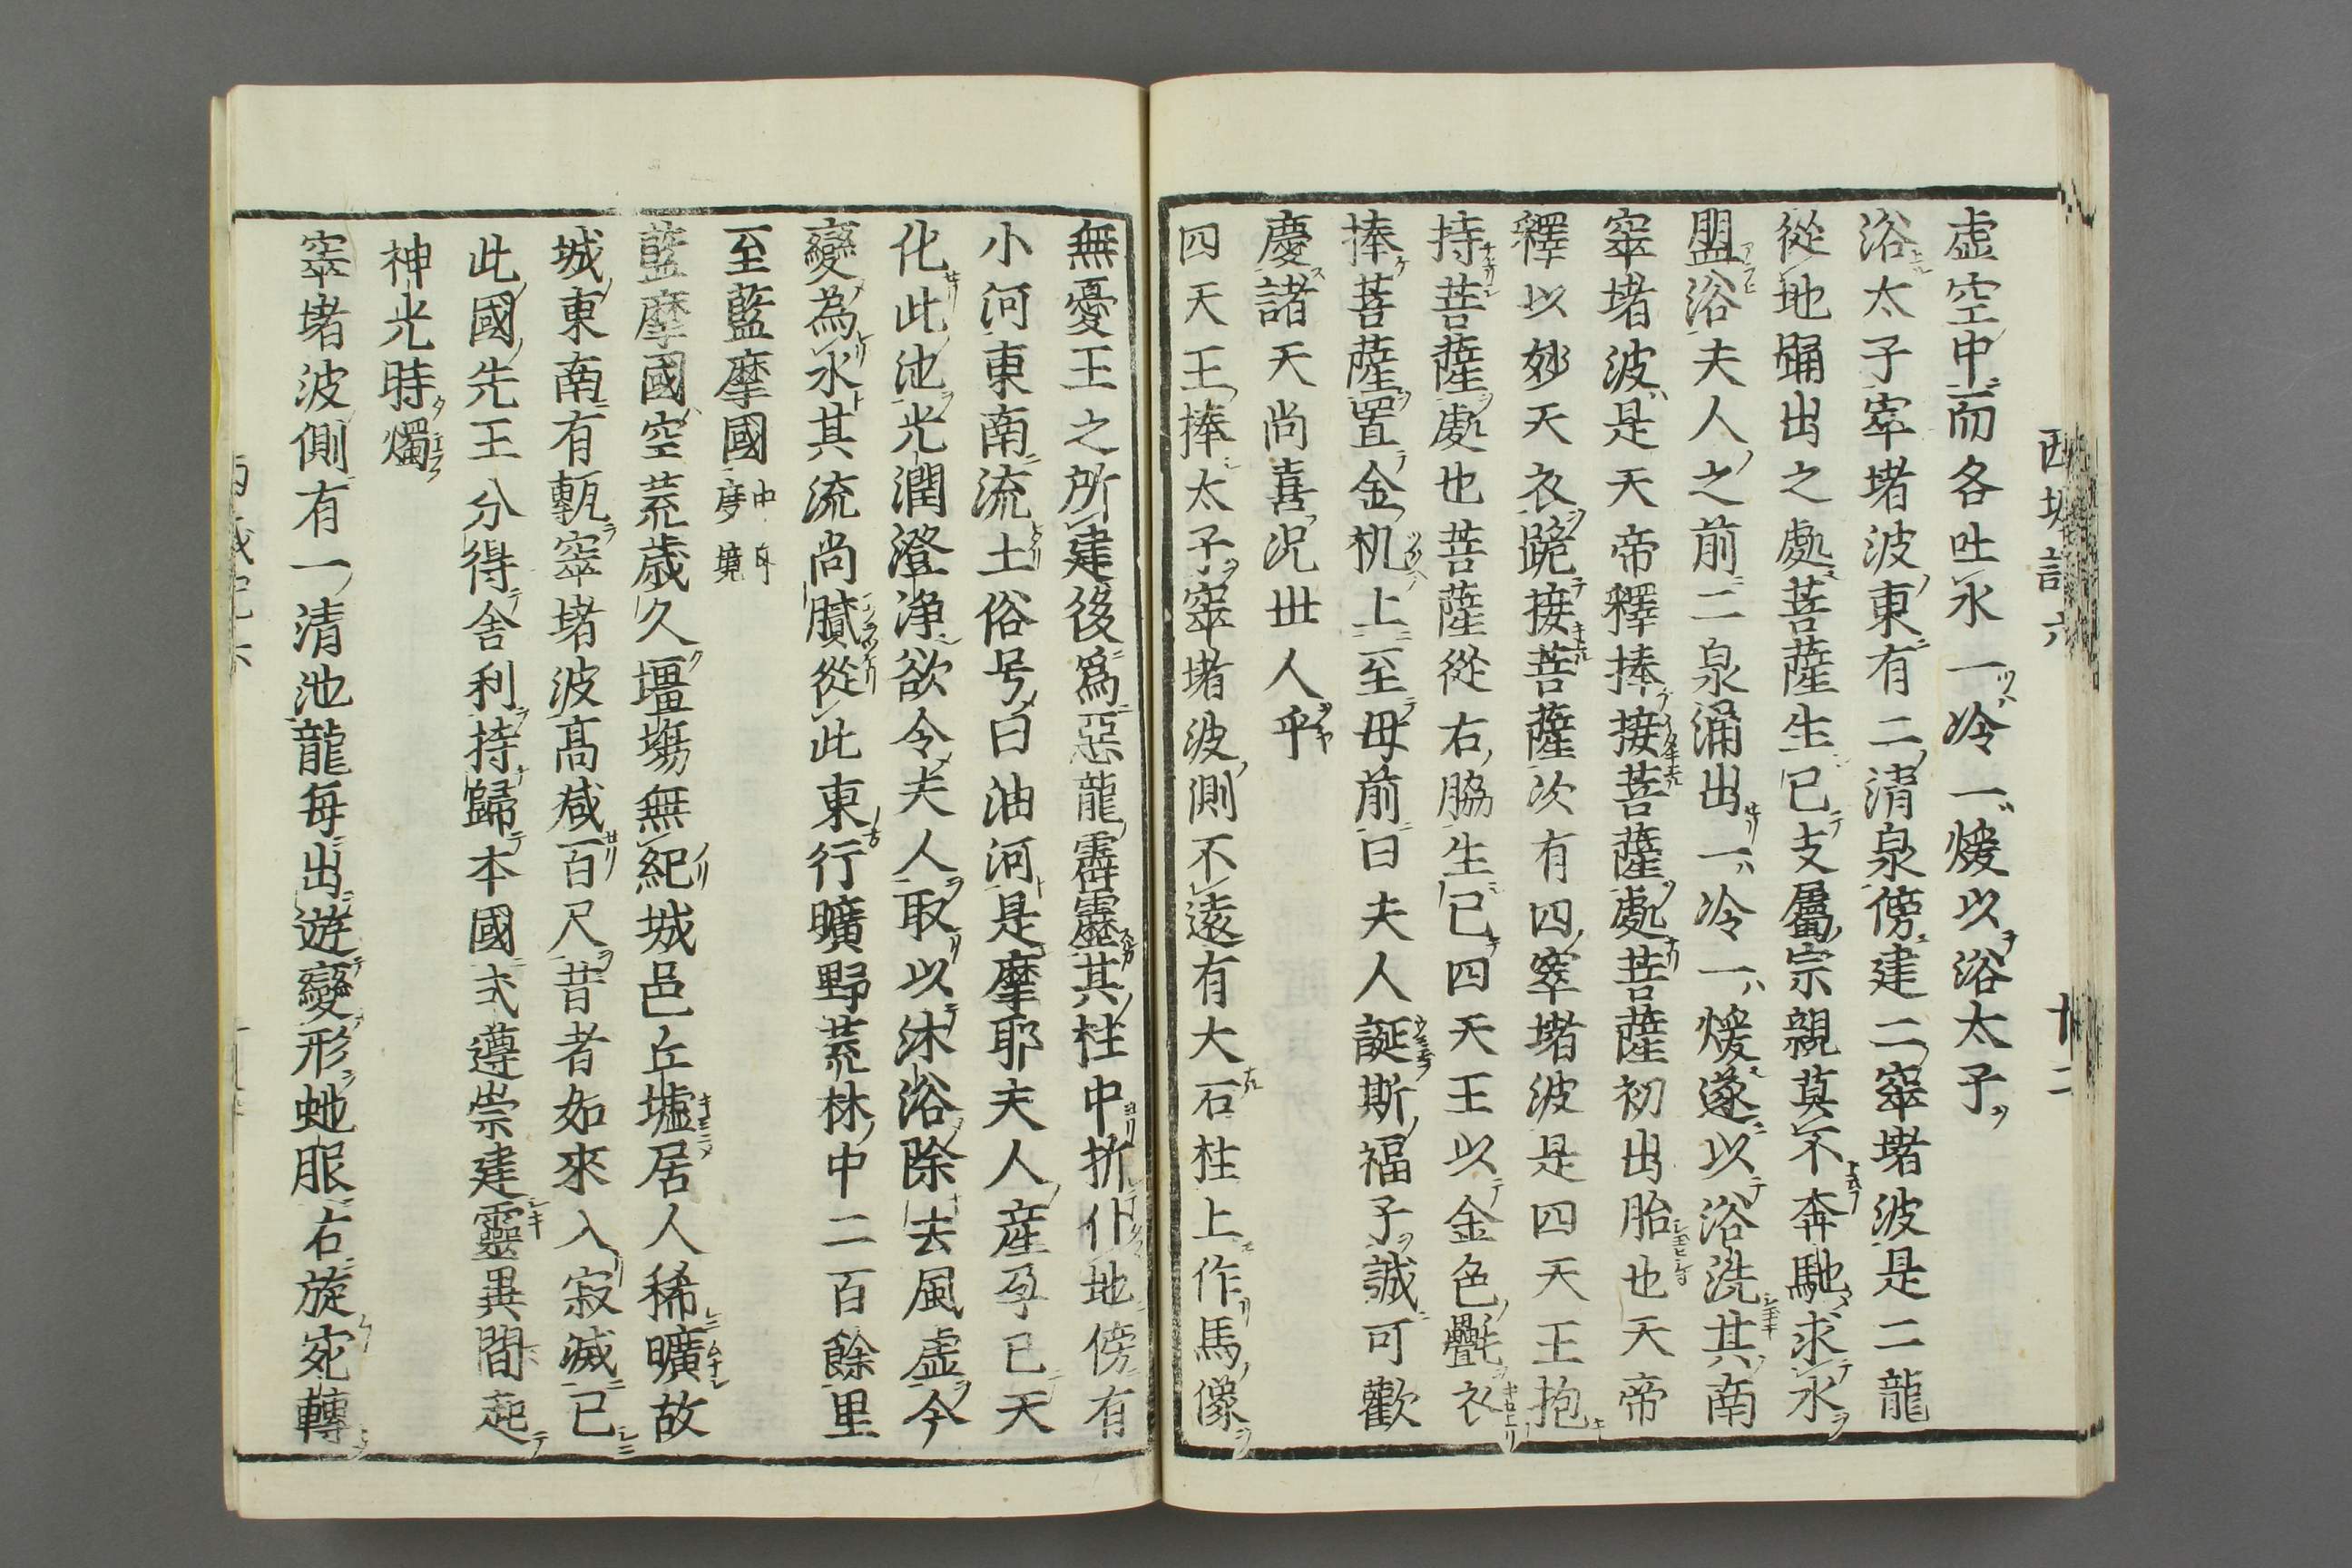 西域記六
廿二
虛空中而各吐水一冷一煖以浴太子
浴太子窣堵波東有二清泉傍建二窣堵波是二龍
從地踊出之處菩薩生已支屬宗親莫不奔馳求水
盥浴夫人之前二泉涌出一冷一煖遂以浴洗其南
窣堵波是天帝釋捧接菩薩處菩薩初出胎也天帝
釋以妙天衣跪接菩薩次有四窣堵波是四天王抱
持菩薩處也菩薩從右脇生已四天王以金色㲲衣
捧菩薩置金机上至母前曰夫人誕斯福子誠可歡
慶諸天尚喜况世人乎
四天王捧太子窣堵波側不遠有大石柱上作馬像
無憂王之所建後爲惡龍霹靂其柱中折仆地傍有
小河東南流土俗号曰油河是摩耶夫人產孕已天
化此池光潤澄淨欲令夫人取以沐浴除去風虛今
變為水其流尚膩從此東行曠野荒林中二百餘里
至藍摩國中印度境
藍摩國空荒歲久壃場無紀城邑丘墟居人稀曠故
城東南有甎窣堵波高減百尺昔者如來入寂滅已
此國先王分得舍利持歸本國式遵崇建靈異間起
神光時燭
窣堵波側有一清池龍每出遊變形蛇服右旋宛轉